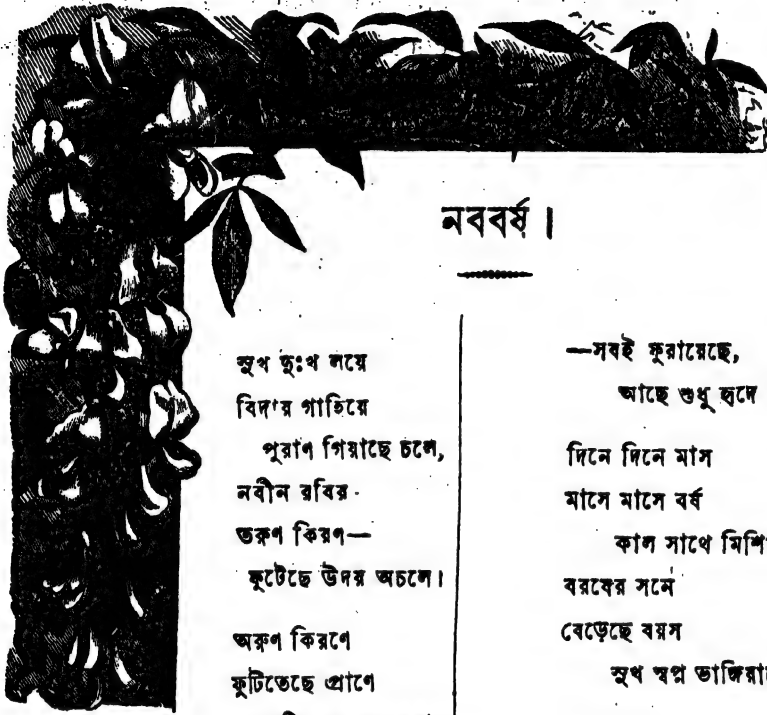 নববর্ষ।
সুখ দুঃখ লয়ে
বিদায় গাহিয়ে
পুরাণ গিয়াছে চলে,
নবীন রবির
তরুণ কিরণ—
ফুটেছে উদয় অচলে।
অরুণ কিরণে
ফুটিতেছে প্রাণে
—সবই ফুরায়েছে,
আছে শুধু হৃদে
দিনে দিনে মাস
মাসে মাসে বর্ষ
কাল সাথে মিশি
বরষের সনে
বেড়েছে বয়স
সুখ স্বপ্ন ভাঙ্গিয়া